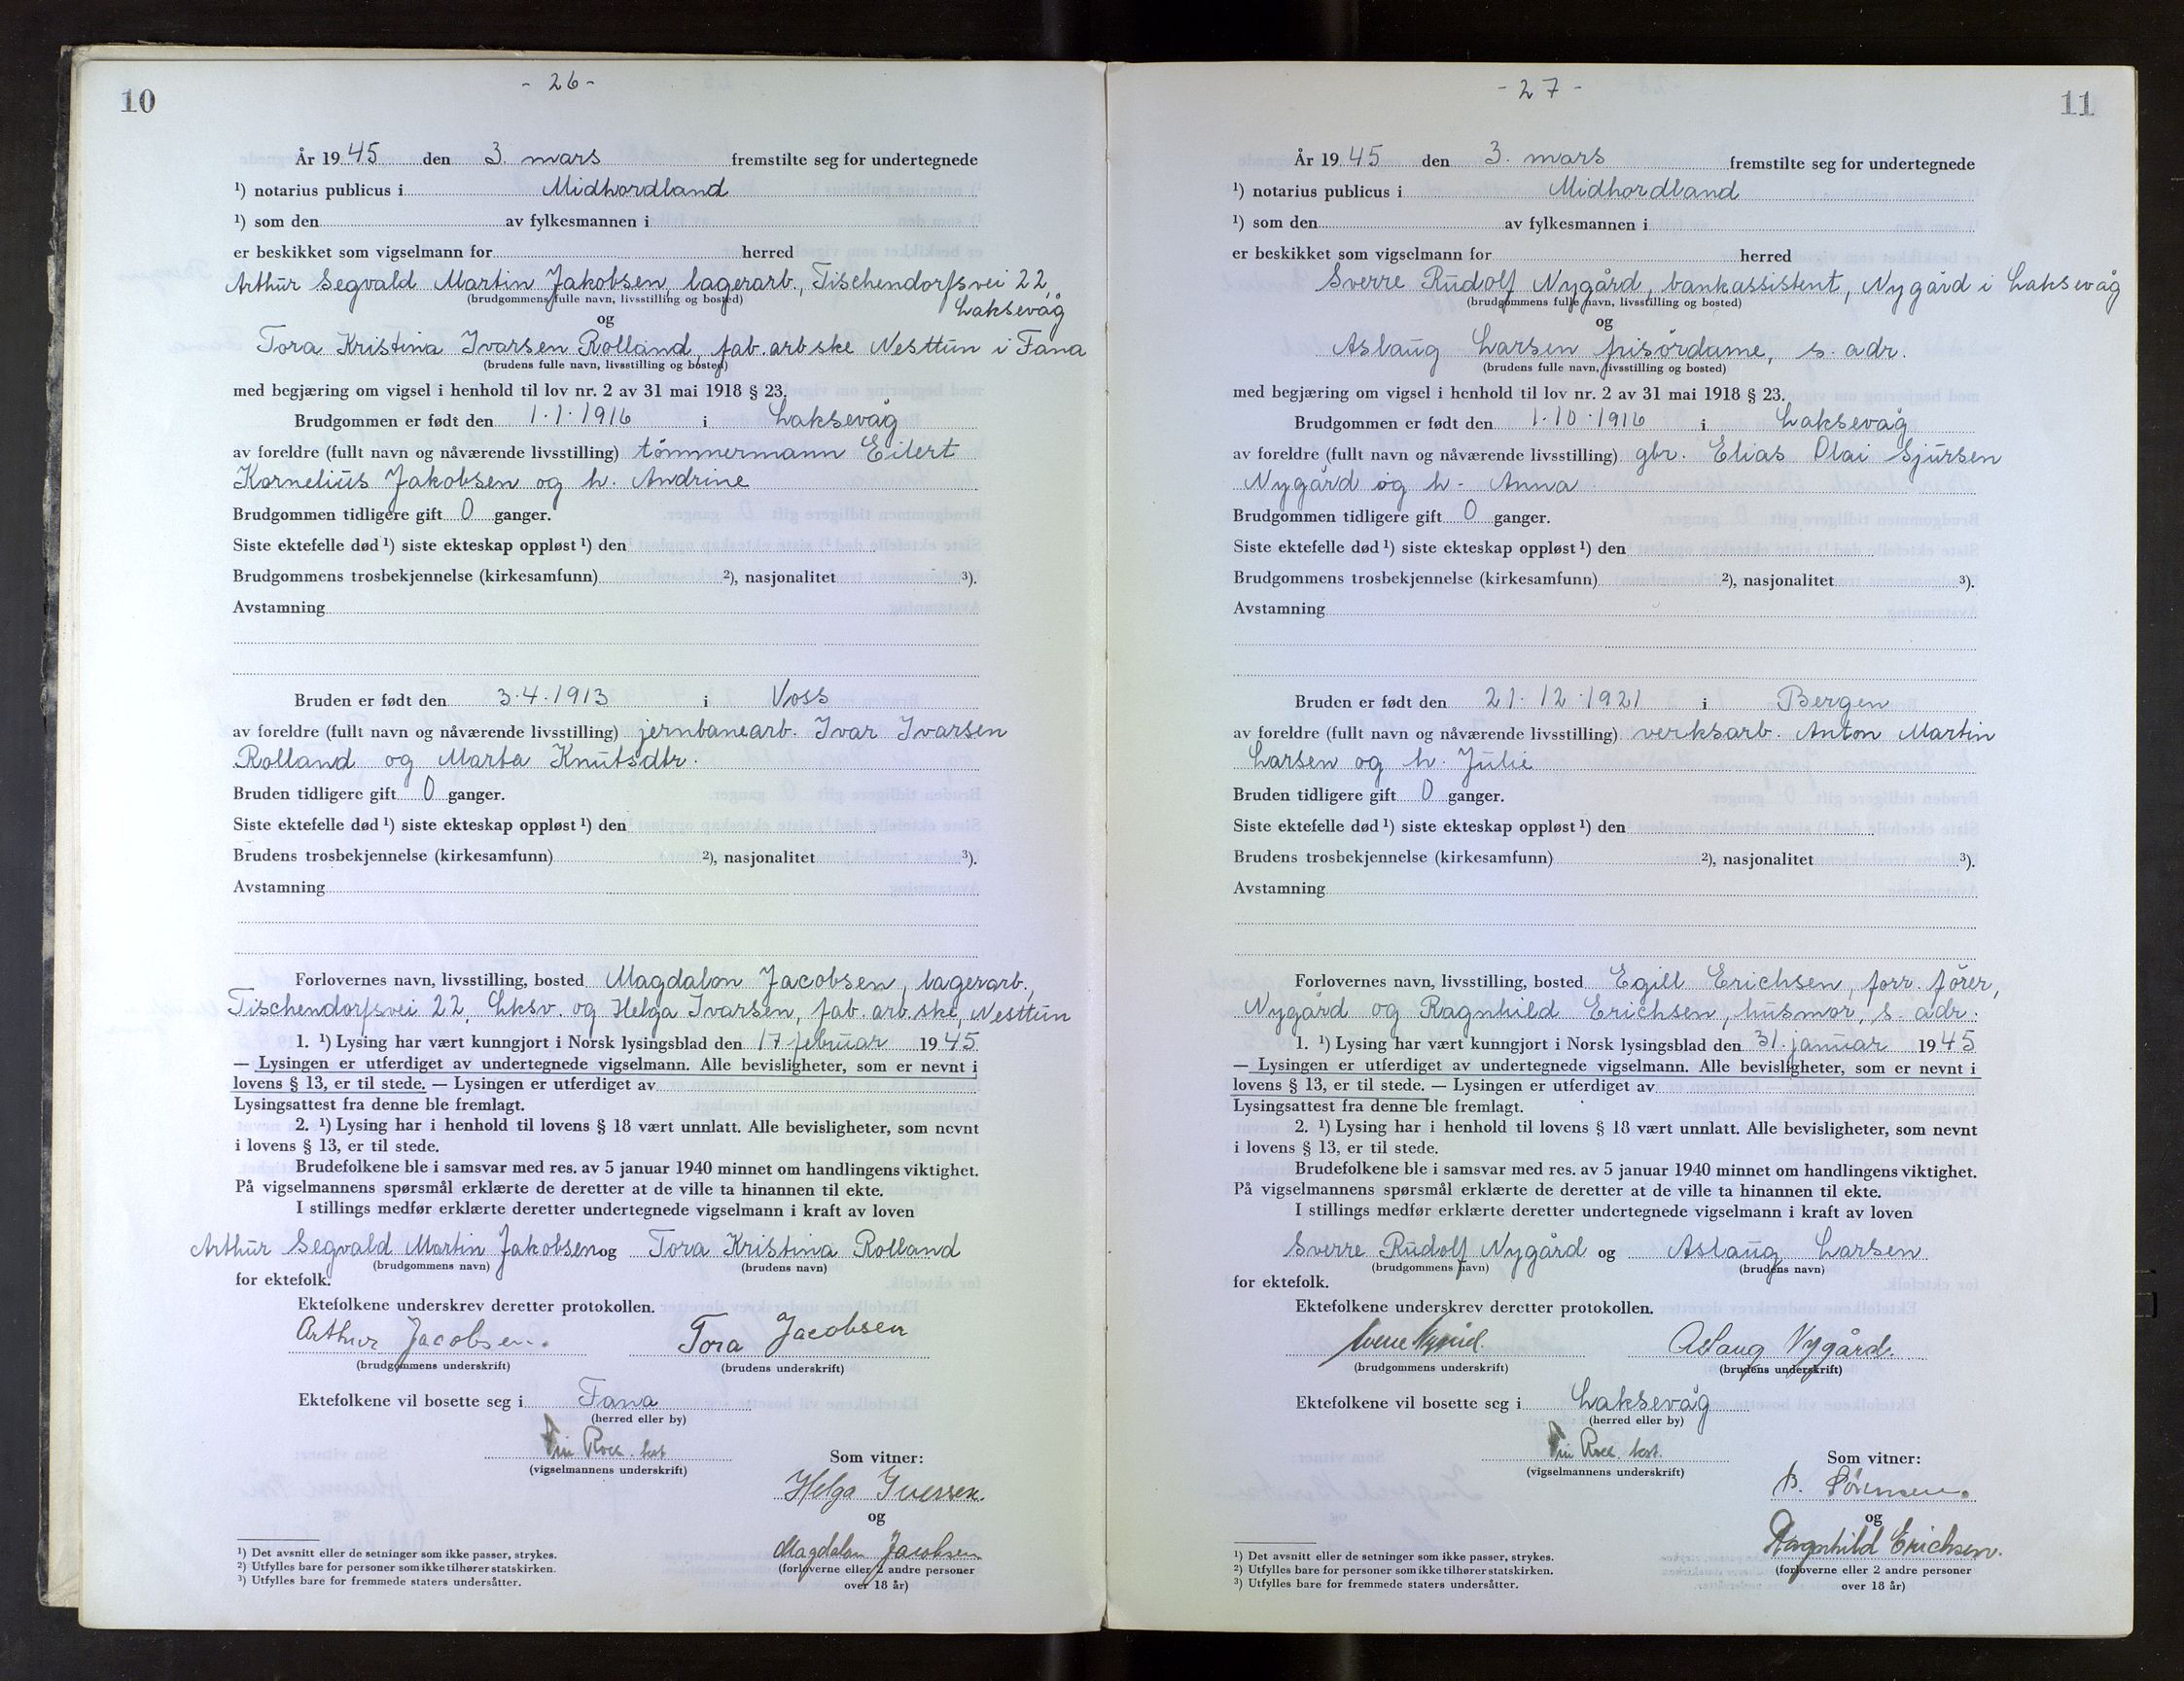 10
- 26 -
År 19 45 den 3. mars fremstilte seg for undertegnede
¹) notarius publicus i Midhordland
¹) som den av fylkesmannen i
er beskikket som vigselmann for herred
Arthur Segvald Martin Jakobsen, lagerarb., Tischendorfsvei 22,
(brudgommens fulle navn, livsstilling og bosted)
Laksevåg
og
Tora Kristina Ivarsen Rolland, fab.arbske Nesttun i Fana
(brudens fulle navn, livsstilling og bosted)
med begjæring om vigsel i henhold til lov nr. 2 av 31 mai 1918 § 23.
Brudgommen er født den 1.1.1916 i Laksevåg
av foreldre (fullt navn og nåværende livsstilling) tømmermann Eilert
Kornelius Jakobsen og h. Andrine
Brudgommen tidligere gift 0 ganger.
Siste ektefelle død ¹) siste ekteskap oppløst ¹) den
Brudgommens trosbekjennelse (kirkesamfunn) ²), nasjonalitet ³).
Avstamning
Bruden er født den 3.4.1913 i Voss
av foreldre (fullt navn og nåværende livsstilling) jernbanearb. Ivar Ivarsen
Rolland og Marta Knutsdtr.
Bruden tidligere gift 0 ganger.
Siste ektefelle død ¹) siste ekteskap oppløst ¹) den
Brudens trosbekjennelse (kirkesamfunn) ²), nasjonalitet ³).
Avstamning
Forlovernes navn, livsstilling, bosted Magdalon Jacobsen, lagerarb.,
Tischendorfsvei 22, Lksv. og Helga Ivarsen, fab.arb.ske, Nesttun
1. ¹) Lysing har vært kunngjort i Norsk lysingsblad den 17 februar 19 45
— Lysingen er utferdiget av undertegnede vigselmann. Alle bevisligheter, som er nevnt i
lovens § 13, er til stede. — Lysingen er utferdiget av
Lysingsattest fra denne ble fremlagt.
2. ¹) Lysing har i henhold til lovens § 18 vært unnlatt. Alle bevisligheter, som nevnt
i lovens § 13, er til stede.
Brudefolkene ble i samsvar med res. av 5 januar 1940 minnet om handlingens viktighet.
På vigselmannens spørsmål erklærte de deretter at de ville ta hinannen til ekte.
I stillings medfør erklærte deretter undertegnede vigselmann i kraft av loven
Arthur Segvald Martin Jakobsen og Tora Kristina Rolland
(brudgommens navn) (brudens navn)
for ektefolk.
Ektefolkene underskrev deretter protokollen.
Arthur Jacobsen. Tora Jacobsen
(brudgommens underskrift) (brudens underskrift)
Ektefolkene vil bosette seg i Fana
(herred eller by)
(vigselmannens underskrift)
Som vitner:
Helga Iversen.
og
Magdalon Jacobsen
(forloverne eller 2 andre personer
over 18 år)
¹) Det avsnitt eller de setninger som ikke passer, strykes.
²) Utfylles bare for personer som ikke tilhører statskirken.
³) Utfylles bare for fremmede staters undersåtter.
11
- 27 -
År 19 45 den 3. mars fremstilte seg for undertegnede
¹) notarius publicus i Midhordland
¹) som den av fylkesmannen i
er beskikket som vigselmann for herred
Sverre Rudolf Nygård, bankassistent, Nygård i Laksevåg
(brudgommens fulle navn, livsstilling og bosted)
og
Aslaug Larsen frisørdame, s. adr.
(brudens fulle navn, livsstilling og bosted)
med begjæring om vigsel i henhold til lov nr. 2 av 31 mai 1918 § 23.
Brudgommen er født den 1.10.1916 i Laksevåg
av foreldre (fullt navn og nåværende livsstilling) gbr. Elias Olai Sjursen
Nygård og h. Anna
Brudgommen tidligere gift 0 ganger.
Siste ektefelle død ¹) siste ekteskap oppløst ¹) den
Brudgommens trosbekjennelse (kirkesamfunn) ²), nasjonalitet ³).
Avstamning
Bruden er født den 21.12.1921 i Bergen
av foreldre (fullt navn og nåværende livsstilling) verksarb. Anton Martin
Larsen og h. Julie
Bruden tidligere gift 0 ganger.
Siste ektefelle død ¹) siste ekteskap oppløst ¹) den
Brudens trosbekjennelse (kirkesamfunn) ²), nasjonalitet ³).
Avstamning
Forlovernes navn, livsstilling, bosted Egill Erichsen, forr.fører,
Nygård og Ragnhild Erichsen, husmor, s. adr.
1. ¹) Lysing har vært kunngjort i Norsk lysingsblad den 31. januar 19 45
— Lysingen er utferdiget av undertegnede vigselmann. Alle bevisligheter, som er nevnt i
lovens § 13, er til stede. — Lysingen er utferdiget av
Lysingsattest fra denne ble fremlagt.
2. ¹) Lysing har i henhold til lovens § 18 vært unnlatt. Alle bevisligheter, som nevnt
i lovens § 13, er til stede.
Brudefolkene ble i samsvar med res. av 5 januar 1940 minnet om handlingens viktighet.
På vigselmannens spørsmål erklærte de deretter at de ville ta hinannen til ekte.
I stillings medfør erklærte deretter undertegnede vigselmann i kraft av loven
Sverre Rudolf Nygård og Aslaug Larsen
(brudgommens navn) (brudens navn)
for ektefolk.
Ektefolkene underskrev deretter protokollen.
Sverre Nygård. Aslaug Nygård.
(brudgommens underskrift) (brudens underskrift)
Ektefolkene vil bosette seg i Laksevåg
(herred eller by)
(vigselmannens underskrift)
Som vitner:
B. Sørensen.
og
Ragnhild Erichsen.
(forloverne eller 2 andre personer
over 18 år)
¹) Det avsnitt eller de setninger som ikke passer, strykes.
²) Utfylles bare for personer som ikke tilhører statskirken.
³) Utfylles bare for fremmede staters undersåtter.